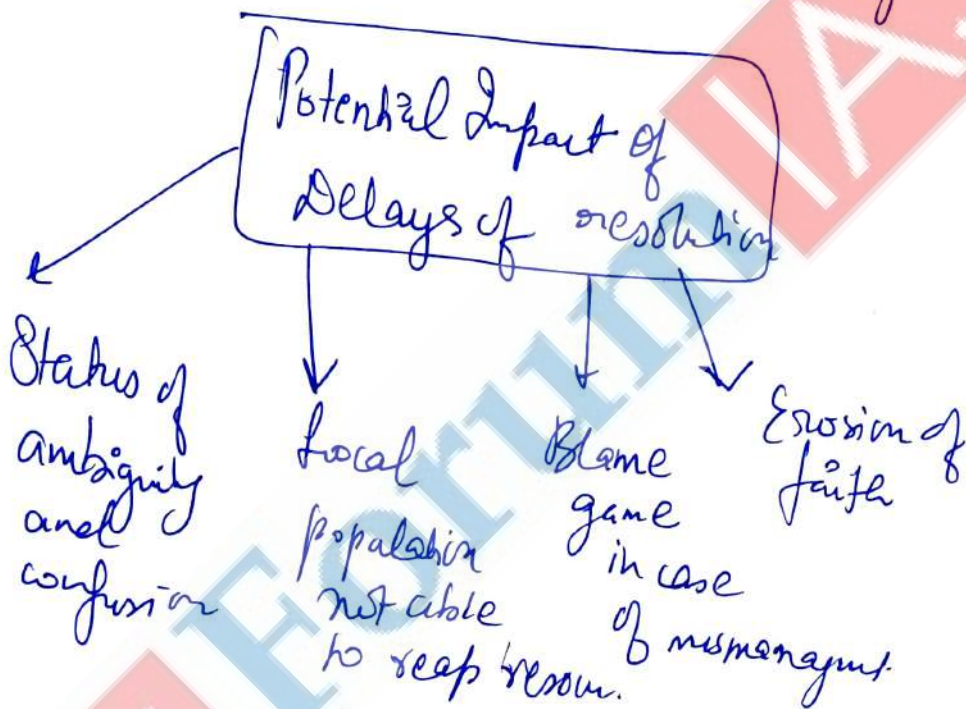 Potential Impact of
Delays of resolution
Status of
ambiguity
and
confusion
Local
population
not able
to reap resour.
Blame
game
in case
of mismanagmt.
Erosion of
faith
Forum IA